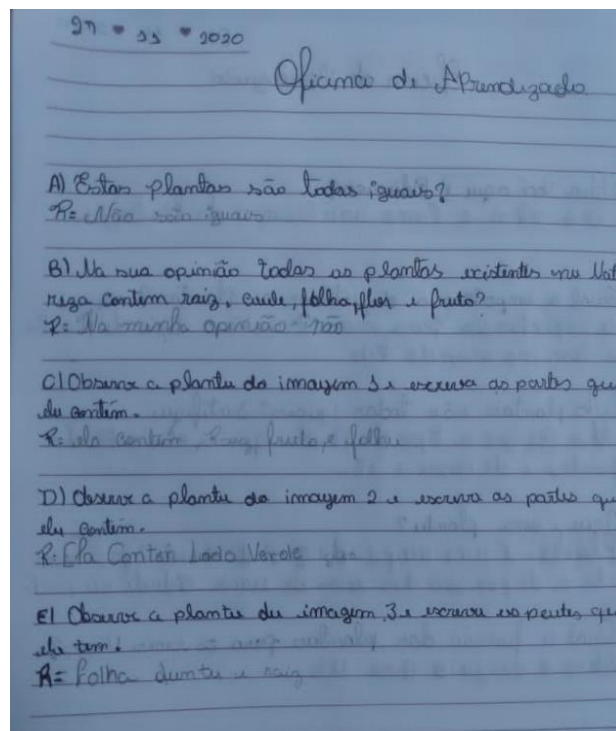 27 • 11 • 2020
Oficina de Aprendizado
A) Estas plantas são todas iguais?
R= Não são iguais
B) Na sua opinião todas as plantas existentes na Nat
reza contem raiz, caule, folha, flor e fruto?
R= Na minha opinião não
C) Observe a planta da imagem 1 e escreva as partes que
ela contém.
R= Ela contem, Raiz, fruto, e folha
D) Observe a planta da imagem 2 e escreva as partes que
ela contem.
R: Ela Conten Lodo Verde
E) Observe a planta da imagem 3 e escreva as partes que
ela tem.
R= Folha e raiz